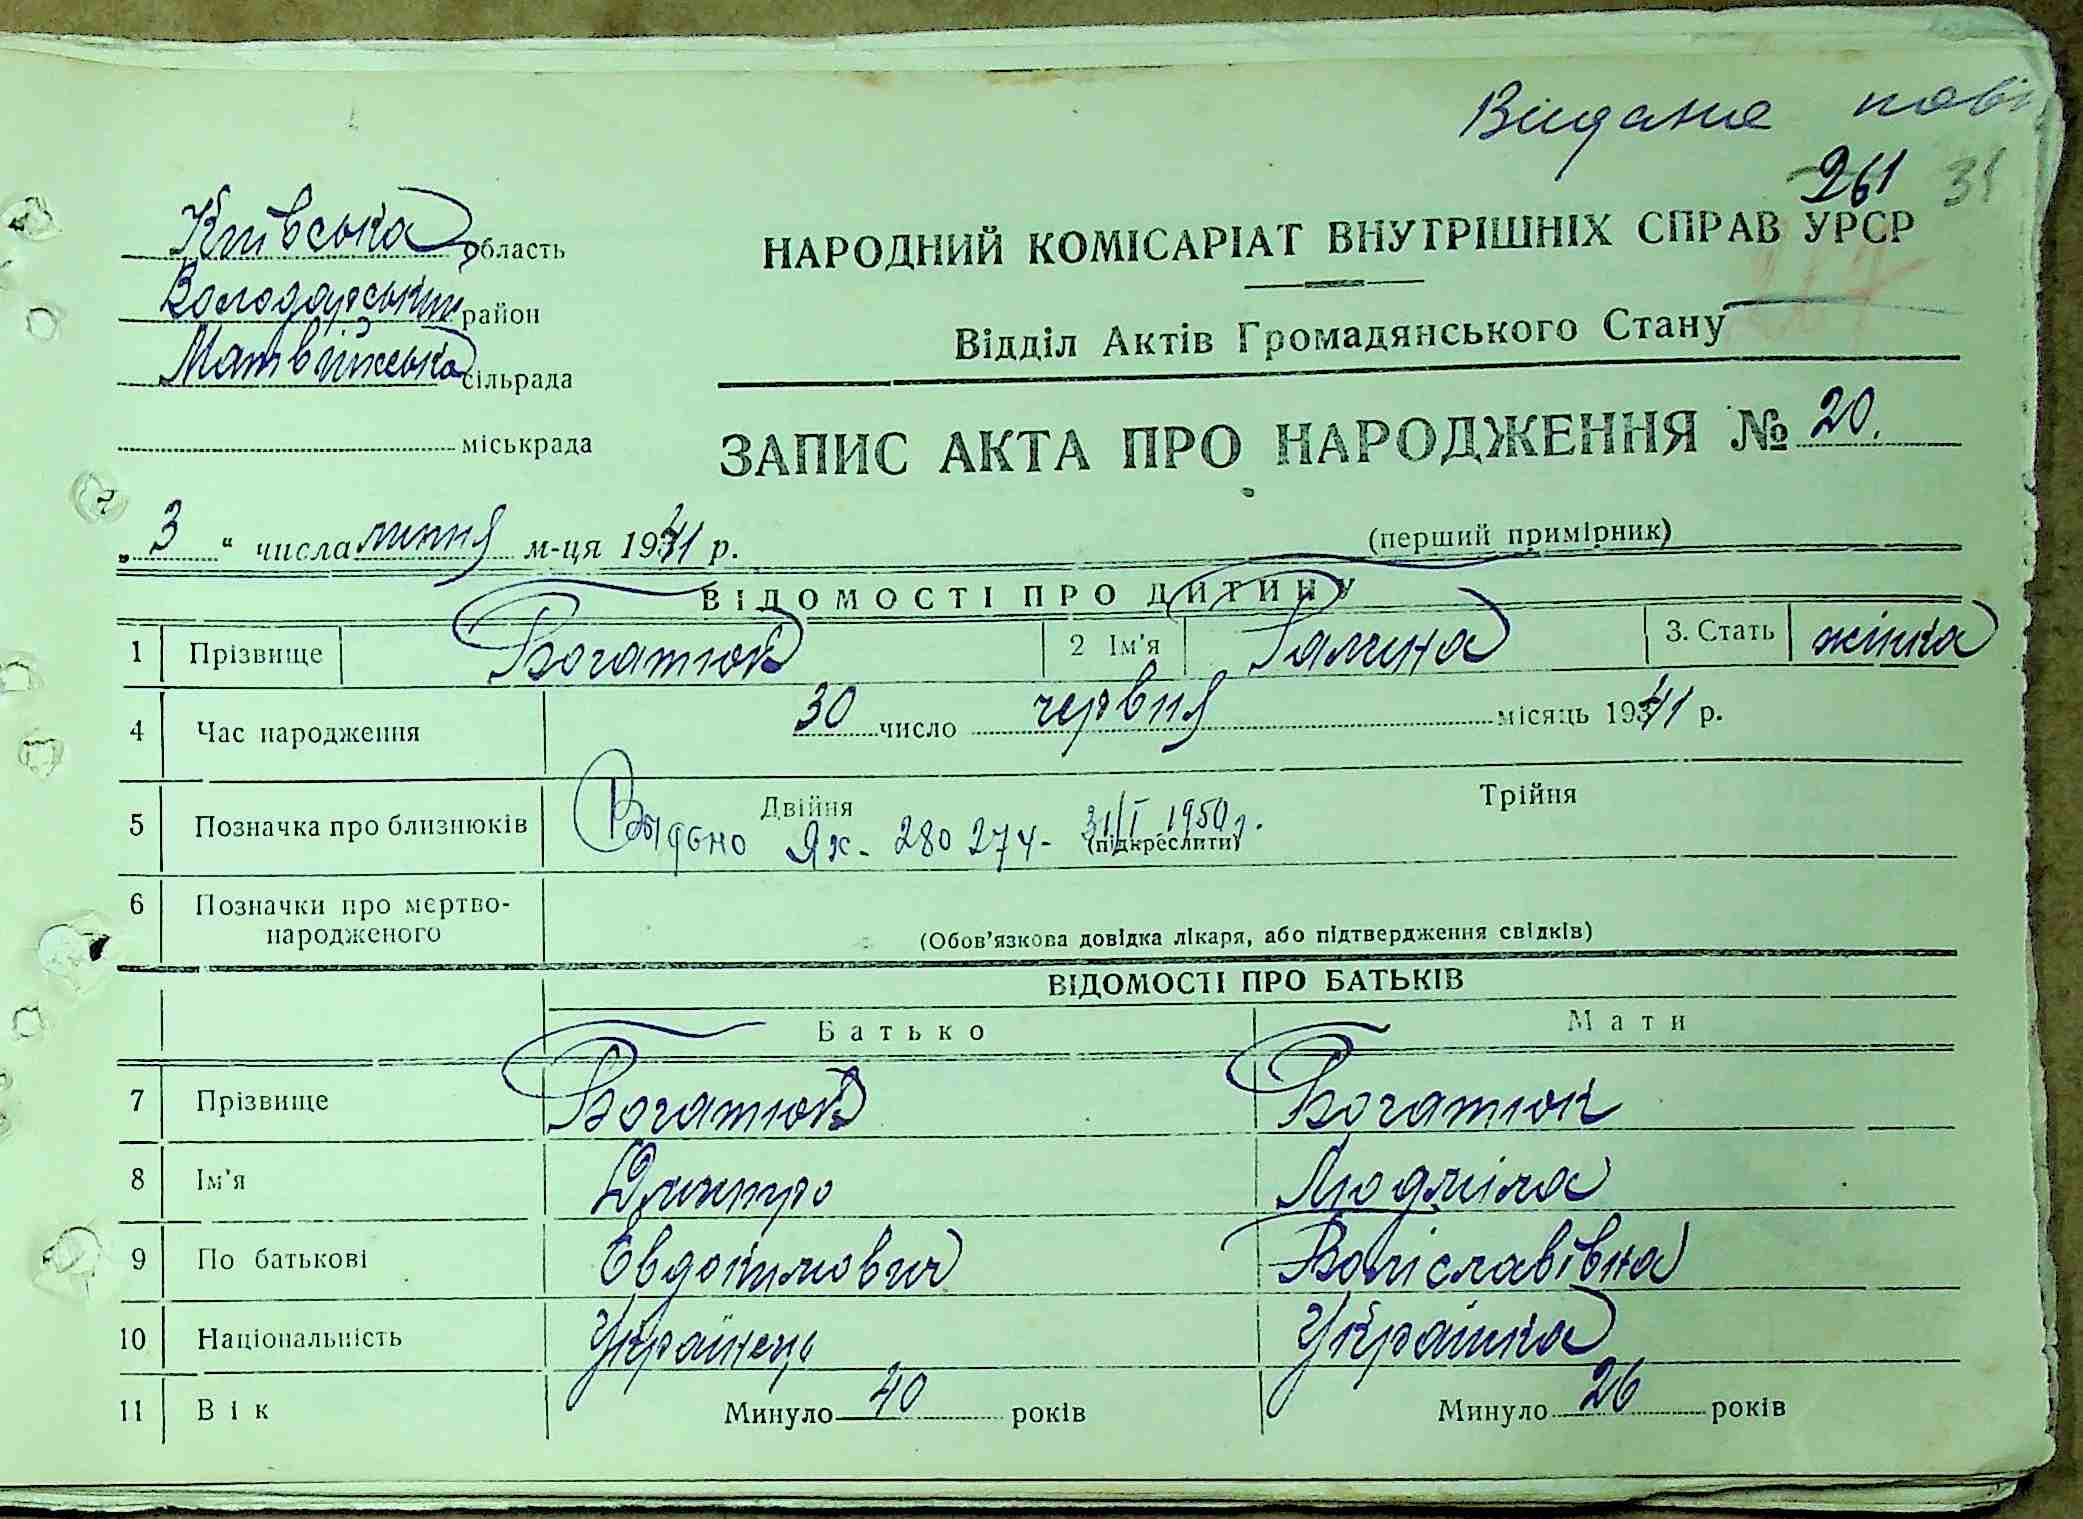 Видано
261 31
Київська область
НАРОДНИЙ КОМІСАРІАТ ВНУТРІШНІХ СПРАВ УРСР
217
Володарський район
Відділ Актів Громадянського Стану
Матвіїська сільрада
міськрада
ЗАПИС АКТА ПРО НАРОДЖЕННЯ № 20.
„3“ числа липня м-ця 1941 р.
(перший примірник)
ВІДОМОСТІ ПРО ДИТИНУ
1 Прізвище Богатюк 2 Ім'я Галина 3. Стать жінка
4 Час народження 30 число червня місяць 1941 р.
5 Позначка про близнюків Двійня Трійня
Выдано ЯХ- 280274- 31/I 1950г.
(підкреслити)
6 Позначки про мертво-
народженого
(Обов'язкова довідка лікаря, або підтвердження свідків)
ВІДОМОСТІ ПРО БАТЬКІВ
Батько Мати
7 Прізвище Богатюк Богатюк
8 Ім'я Дмитро Людміла
9 По батькові Евдокимович Воліславівна
10 Національність Українець Українка
11 Вік Минуло 40 років Минуло 26 років